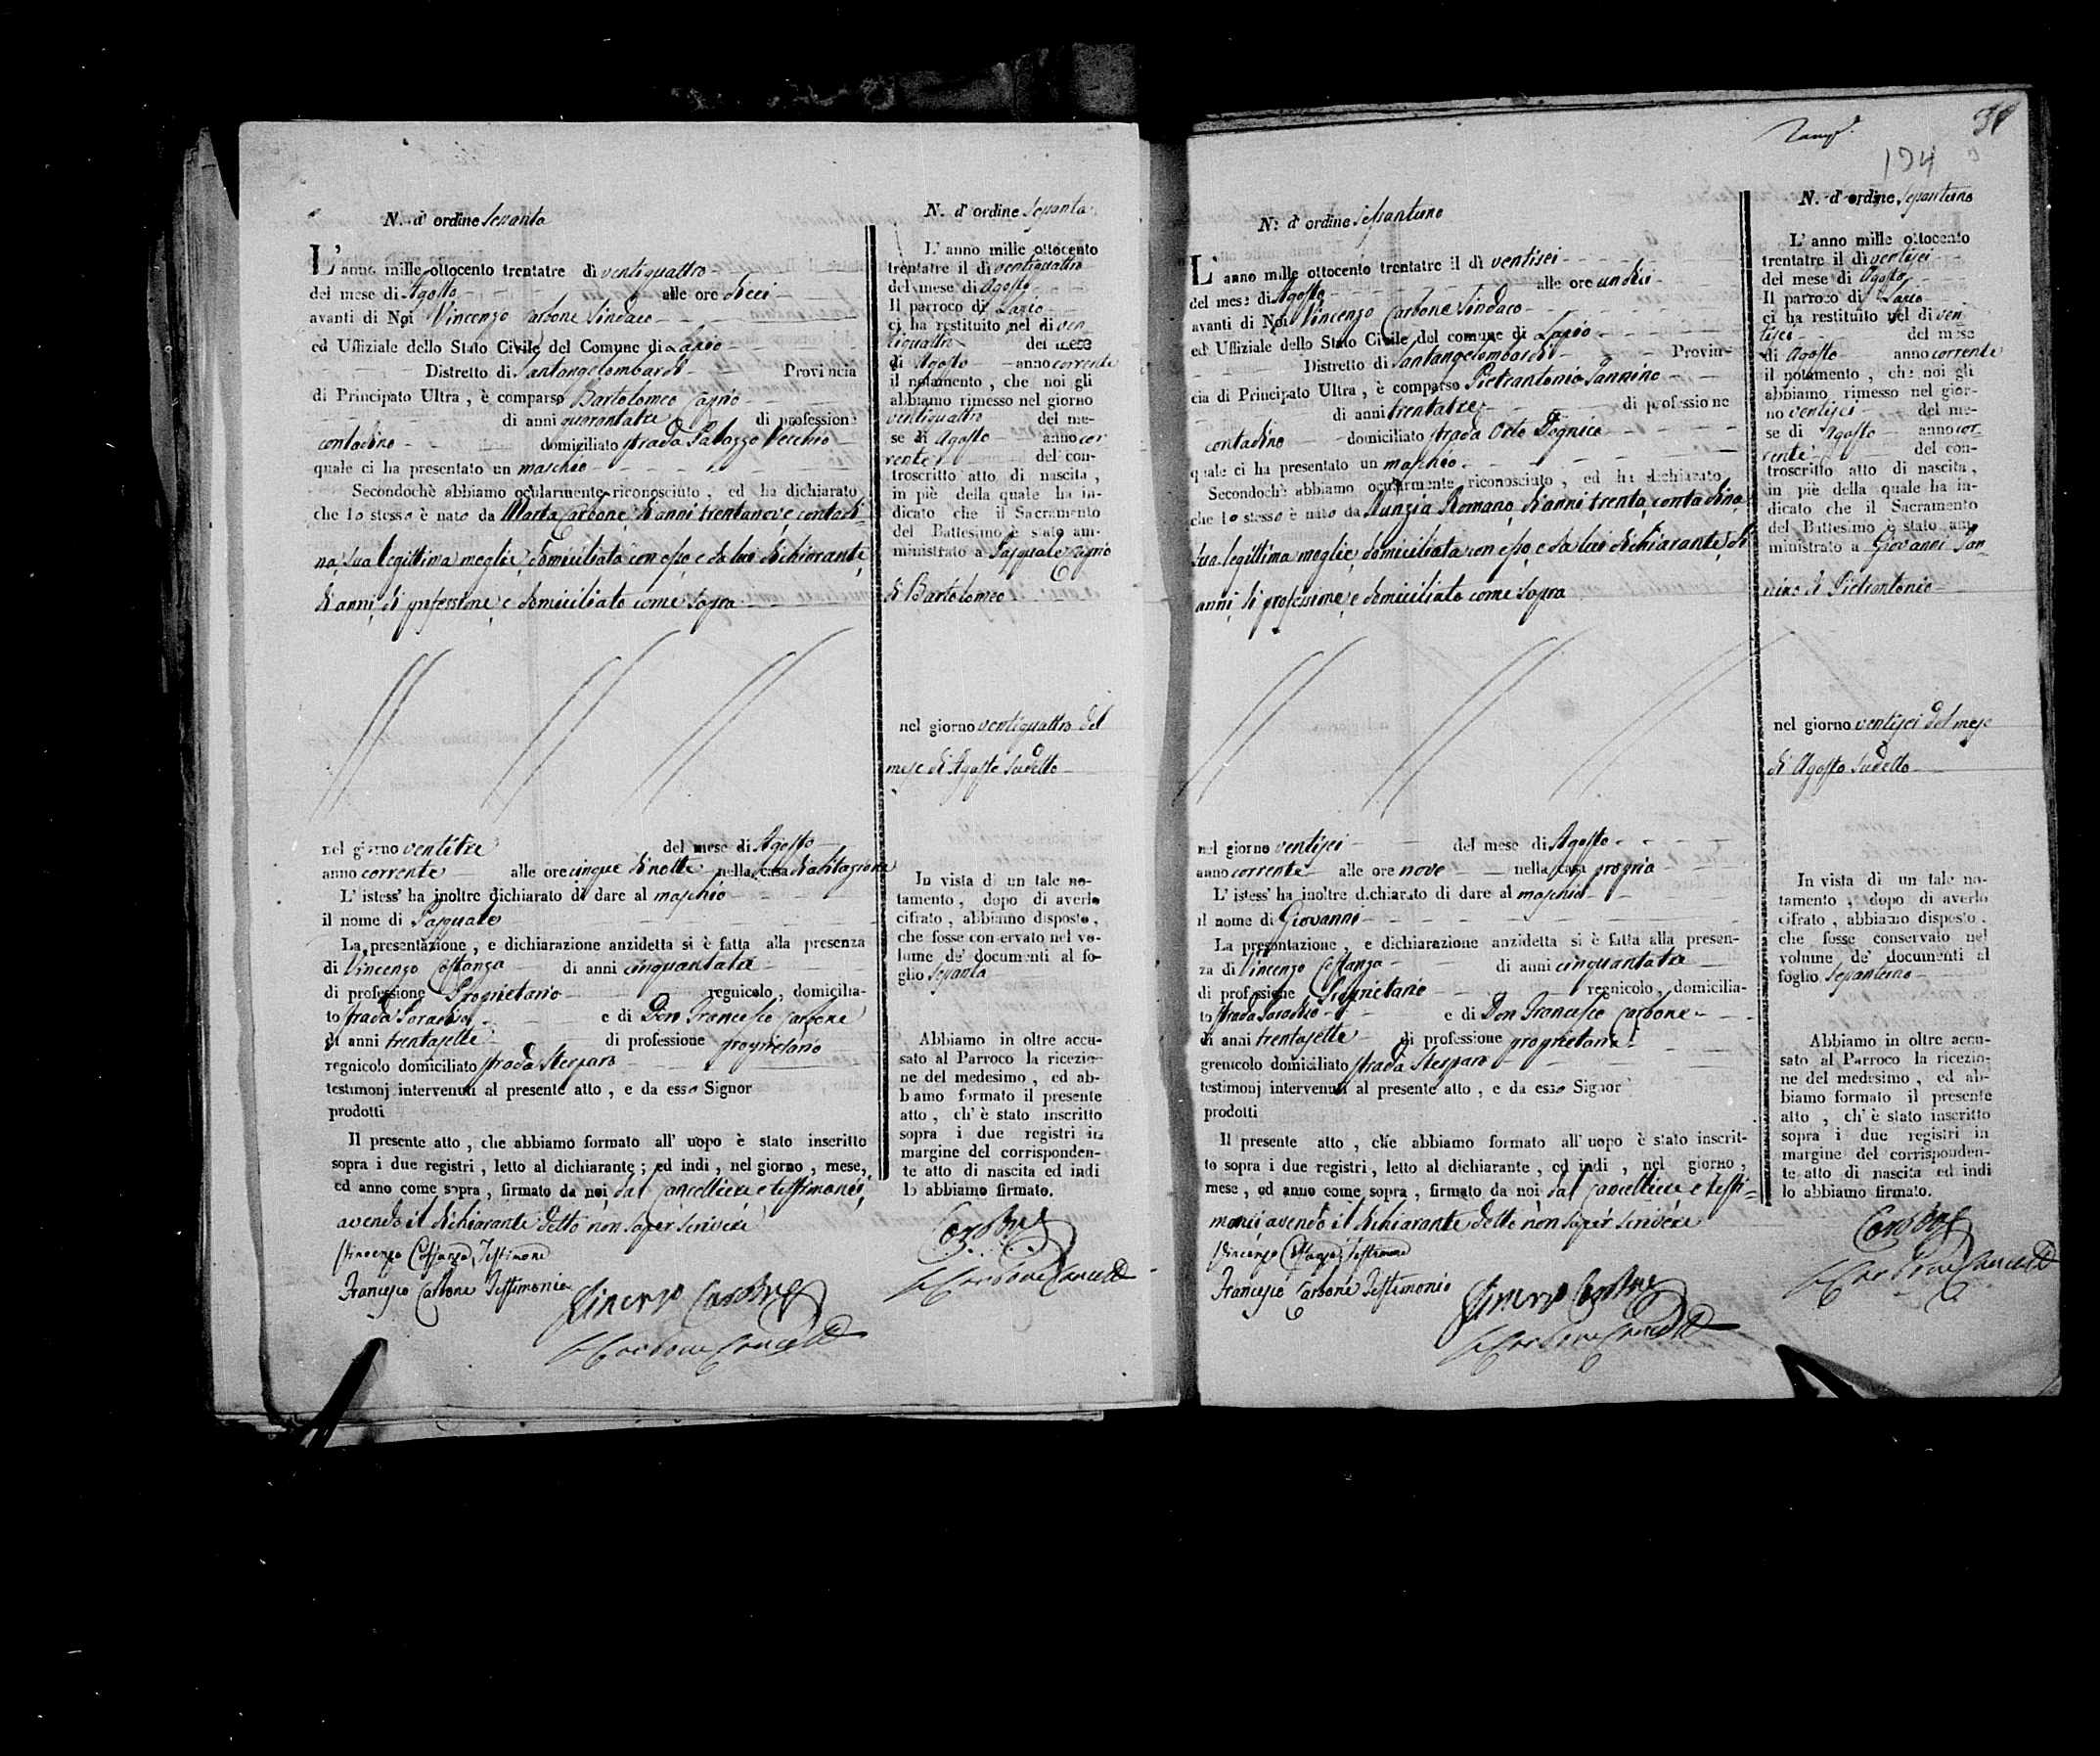 N. d' ordine Sessanta
L' anno mille ottocento trentatre dì ventiquattro
del mese di Agosto alle ore dieci
avanti di Noi Vincenzo Carbone Sindaco
ed Uffiziale dello Stato Civile del Comune di Lapio
Distretto di Santangelolombardi Provincia
di Principato Ultra, è comparso Bartolomeo
di anni quarantatre di professione
contadino domiciliato strada Palazzo Vecchio
quale ci ha presentato un maschio
Secondochè abbiamo ocularmente riconosciuto, ed ha dichiarato
che lo stesso è nato da Marta Carbone, di anni trentanove, contadi-
na, sua legittima moglie, domiciliata con esso, e da lui dichiarante,
di anni, di professione, e domiciliato come sopra
nel giorno ventitre del mese di Agosto
anno corrente alle ore cinque di notte nella casa di abitazione
L' istess' ha inoltre dichiarato di dare al maschio
il nome di Pasquale
La presentazione, e dichiarazione anzidetta si è fatta alla presenza
di Vincenzo Costanza di anni cinquantatre
di professione Proprietario regnicolo, domicilia-
to strada Paradiso e di Don Francesco Carbone
di anni trentasette di professione proprietario
regnicolo domiciliato strada
testimonj intervenuti al presente atto, e da esso Signor
prodotti
Il presente atto, che abbiamo formato all' uopo è stato inscritto
sopra i due registri, letto al dichiarante; ed indi, nel giorno, mese,
ed anno come sopra, firmato da noi, dal Cancelliere e testimonj,
avendo il dichiarante detto non saper scrivere
Vincenzo Costanza Testimone
Francesco Carbone Testimonio
Vincenzo Carbone
Carbone Cancell
N. d' ordine Sessanta
L' anno mille ottocento
trentatre il dì ventiquattro
del mese di Agosto
Il parroco di Lapio
ci ha restituito nel dì ven
tiquattro del mese
di Agosto anno corrente
il notamento, che noi gli
abbiamo rimesso nel giorno
ventiquattro del me-
se di Agosto anno cor
rente del con-
troscritto atto di nascita,
in piè della quale ha in-
dicato che il Sacramento
del Battesimo è stato am-
ministrato a Pasquale
di Bartolomeo
nel giorno ventiquattro del
mese di Agosto sudetto
In vista di un tale no-
tamento, dopo di averlo
cifrato, abbiamo disposto,
che fosse conservato nel vo-
lume de' documenti al fo-
glio sessanta
Abbiamo in oltre accu-
sato al Parroco la ricezio-
ne del medesimo, ed ab-
biamo formato il presente
atto, ch' è stato inscritto
sopra i due registri in
margine del corrisponden-
te atto di nascita ed indi
lo abbiamo firmato.
Carbone
Carbone Cancell
194
N: d' ordine Sessantuno
L' anno mille ottocento trentatre il dì ventisei
del mese di Agosto alle ore undici
avanti di Noi Vincenzo Carbone Sindaco
ed Uffiziale dello Stato Civile del comune di Lapio
Distretto di Santangelolombardi Provin-
cia di Principato Ultra, è comparso Pietrantonio Iannino
di anni trentatre di professione
contadino domiciliato strada Orto
quale ci ha presentato un maschio
Secondochè abbiamo ocularmente riconosciuto, ed ha dichiarato
che lo stesso è nato da Nunzia Romano, di anni trenta, contadina,
sua legittima moglie, domiciliata con esso, e da lui dichiarante, di
anni, di professione, e domiciliato come sopra
nel giorno ventisei del mese di Agosto
anno corrente alle ore nove nella casa propria
L' istess' ha inoltre dichiarato di dare al maschio
il nome di Giovanni
La presentazione, e dichiarazione anzidetta si è fatta alla presen-
za di Vincenzo Costanza di anni cinquantatre
di professione Proprietario regnicolo, domicilia-
to strada Paradiso e di Don Francesco Carbone
di anni trentasette di professione proprietario
gregnicolo domiciliato strada
testimonj intervenuti al presente atto, e da esso Signor
prodotti
Il presente atto, che abbiamo formato all' uopo è stato inscrit-
to sopra i due registri, letto al dichiarante, ed indi, nel giorno,
mese, ed anno come sopra, firmato da noi dal Cancelliere e testi-
monj avendo il dichiarante detto non saper scrivere
Vincenzo Costanza Testimone
Francesco Carbone Testimonio
Vincenzo Carbone
Carbone Cancell
N. d' ordine Sessantuno
L' anno mille ottocento
trentatre il dì ventisei
del mese di Agosto
Il parroco di Lapio
ci ha restituito nel dì ven
tisei del mese
di Agosto anno corrente
il notamento, che noi gli
abbiamo rimesso nel gior-
no ventisei del me-
se di Agosto anno cor-
rente del con-
troscritto atto di nascita,
in piè della quale ha in-
dicato che il Sacramento
del Battesimo è stato am-
ministrato a Giovanni Ian-
nino di Pietrantonio
nel giorno ventisei del mese
di Agosto sudetto
In vista di un tale no-
tamento, dopo di averlo
cifrato, abbiamo disposto,
che fosse conservato nel
volume de' documenti al
foglio Sessantuno
Abbiamo in oltre accu-
sato al Parroco la ricezio-
ne del medesimo, ed ab-
biamo formato il presente
atto, ch' è stato inscritto
sopra i due registri in
margine del corrisponden-
te atto di nascita ed indi
lo abbiamo firmato.
Carbone
Carbone Cancell